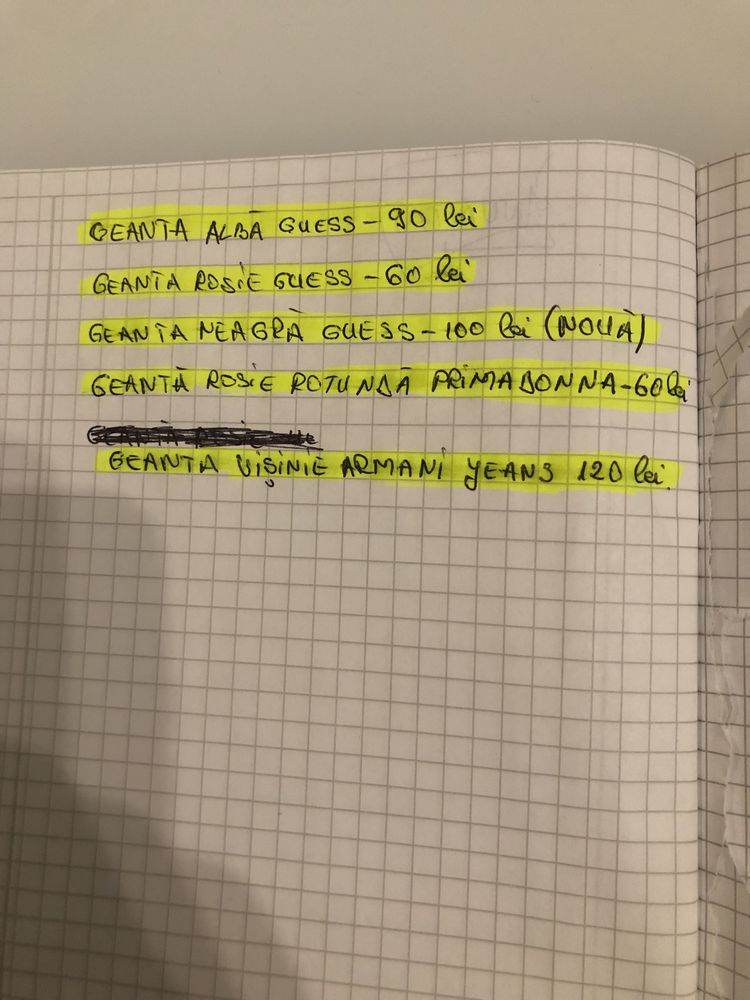 GEANTA ALBĂ GUESS - 90 lei
GEANTA ROSIE GUESS - 60 lei
GEANTA NEAGRĂ GUESS - 100 lei (NOUĂ)
GEANTĂ ROSIE ROTUNDĂ PRIMADONNA - 60 lei
GEANTA VIȘINIE ARMANI YEANS 120 lei.